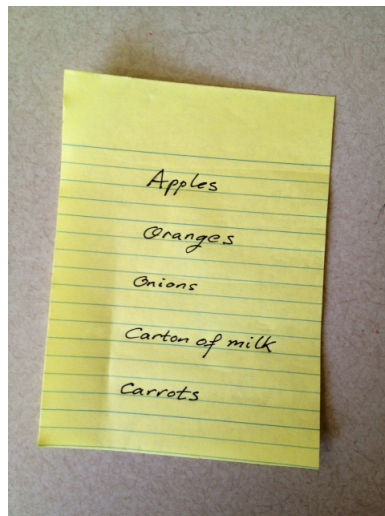 Apples
Oranges
Onions
Carton of milk
Carrots